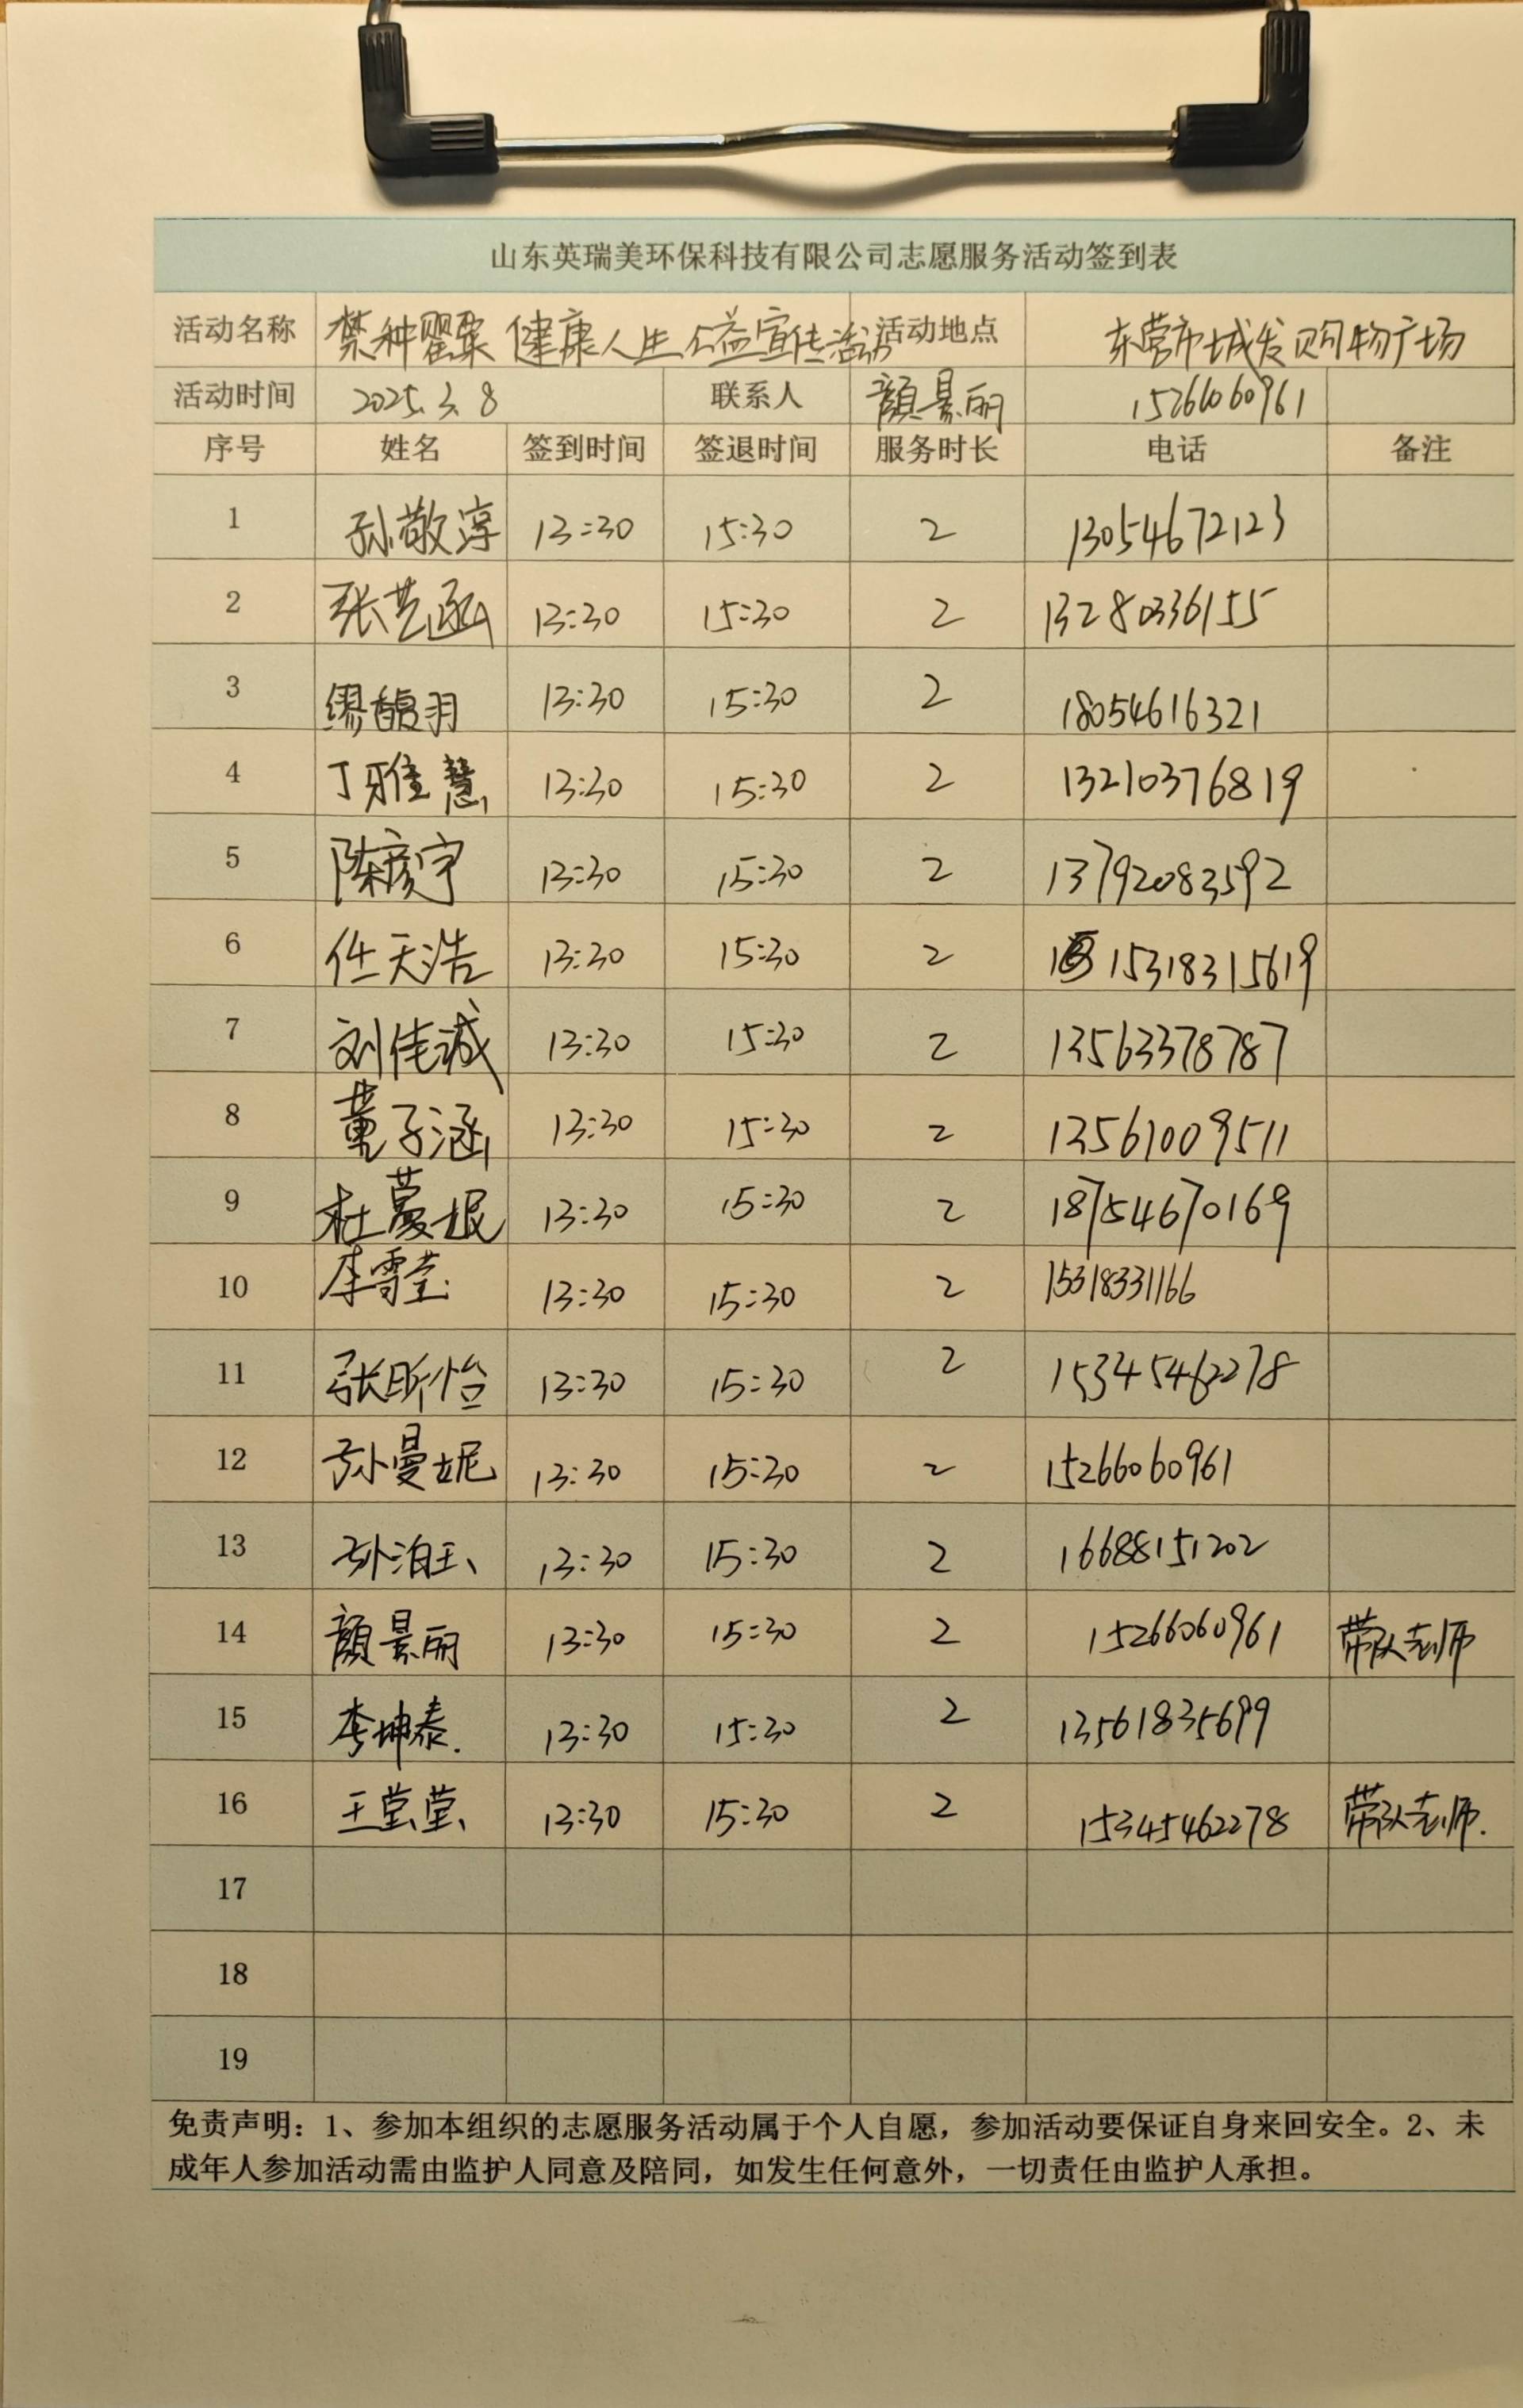 山东英瑞美环保科技有限公司志愿服务活动签到表
活动名称 禁种罂粟 健康人生 公益宣传活动 活动地点 东营市城发购物广场
活动时间 2025.3.8 联系人 颜景丽 15266060961
序号 姓名 签到时间 签退时间 服务时长 电话 备注
1 孙敬淳 13:30 15:30 2 13054672123
2 张艺函 13:30 15:30 2 13280336155
3 缪馥羽 13:30 15:30 2 18054616321
4 丁雅慧 13:30 15:30 2 13210376819
5 陈彦宇 13:30 15:30 2 13792083592
6 任天浩 13:30 15:30 2 15318315619
7 刘佳诚 13:30 15:30 2 13563378787
8 董子涵 13:30 15:30 2 13561009511
9 杜蔓垠 13:30 15:30 2 18754670169
10 李雪莹 13:30 15:30 2 15318331166
11 张昕怡 13:30 15:30 2 15345462278
12 孙曼妮 13:30 15:30 2 15266060961
13 孙泊玉 13:30 15:30 2 16688151202
14 颜景丽 13:30 15:30 2 15266060961 带队老师
15 李坤泰 13:30 15:30 2 13561835699
16 王莹莹 13:30 15:30 2 15345462278 带队老师
17
18
19
免责声明：1、参加本组织的志愿服务活动属于个人自愿，参加活动要保证自身来回安全。2、未
成年人参加活动需由监护人同意及陪同，如发生任何意外，一切责任由监护人承担。